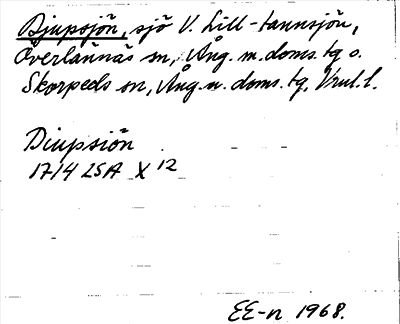 Djupsjön, sjö V. Lill-tannsjön,
Överlännäs sn, Ång. m. doms. tg o.
Skorpeds sn, Ång. n. doms. tg, Vnl. l.
Diupsiön
1714 LSA X 12
EE-n 1968.